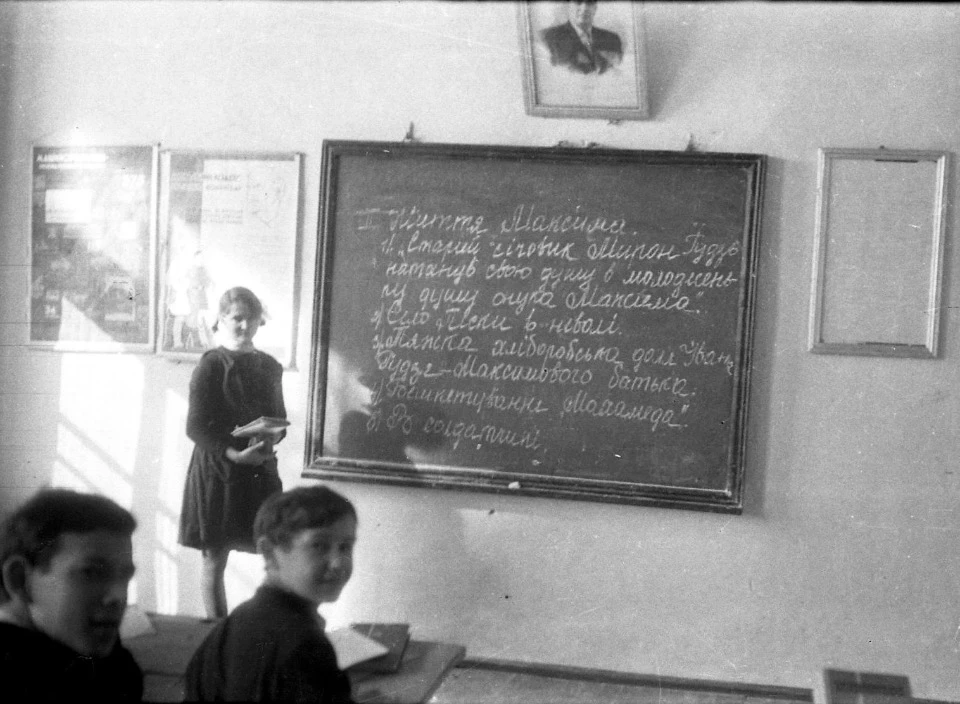 II Життя Максима.
1) „Старий січовик Мирон Гудзь
натхнув свою душу в молодень-
ку душу онука Максима".
2) Село Піски в неволі.
3) Тяжка хліборобська доля Івана
Гудзя – Максимового батька.
4) Бешкетування „Махамеда".
5) В солдатчині.